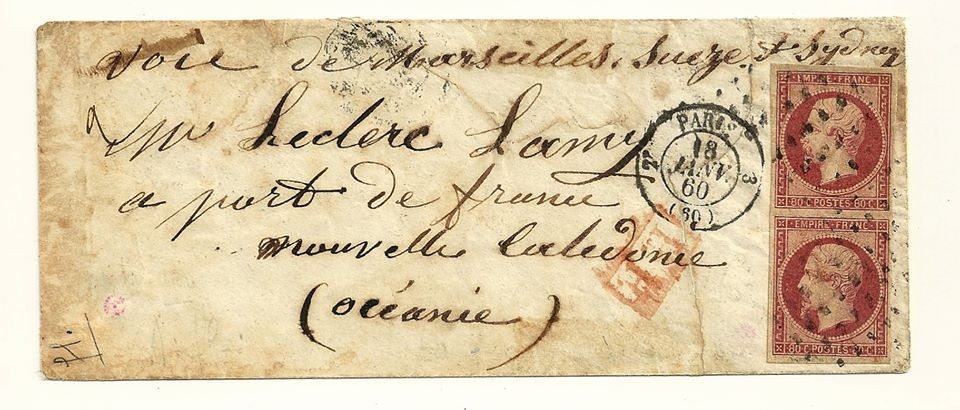 voie de Marseilles, Sueze & Sydney
Mr Leclerc Lamy
a port de france
nouvelle Caledonie
(océanie)
PARIS
18
JANV.
60
(60)
3
EMPIRE FRANC.
80 C POSTES 80 C
EMPIRE FRANC.
80 C POSTES 80 C